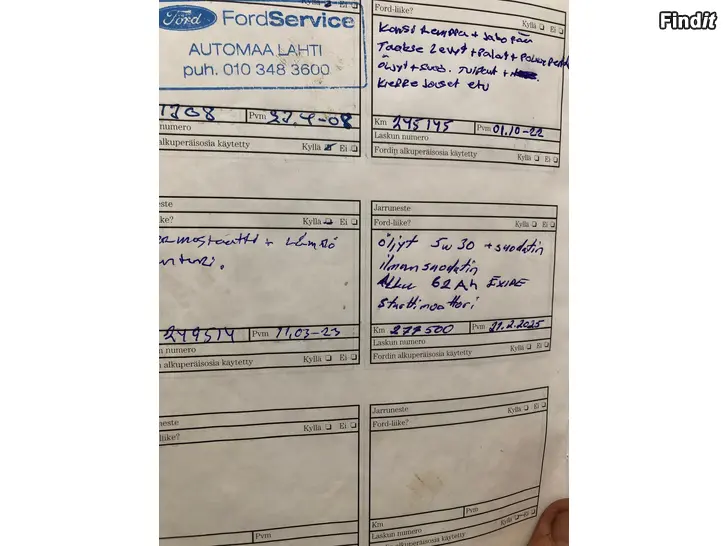 Findit
Kyllä ☒ Ei ☐
Ford FordService
AUTOMAA LAHTI
puh. 010 348 3600
Pvm 22.4-08
numero
alkuperäisosia käytetty Kyllä ☒ Ei ☐
Ford-liike? Kyllä ☐ Ei ☐
Taakse 2 levyt + Palat +
öljyt + suod.
etu
Km 245145 Pvm 01.10-22
Laskun numero
Fordin alkuperäisosia käytetty Kyllä ☐ Ei ☐
neste
liike? Kyllä ☐ Ei ☐
ermostaatti + Lämpö
nturi.
249514 Pvm 11.03-23
n numero
n alkuperäisosia käytetty Kyllä ☐ Ei ☐
Jarruneste
Ford-liike? Kyllä ☐ Ei ☐
öljyt 5w30 + suodatin
ilmansuodatin
Akku 62Ah EXIDE
Starttimoottori
Km 277500 Pvm 21.2.2025
Laskun numero
Fordin alkuperäisosia käytetty Kyllä ☐ Ei ☐
neste
liike? Kyllä ☐ Ei ☐
Pvm
n numero
Jarruneste
Ford-liike? Kyllä ☐ Ei ☐
Km Pvm
Laskun numero
Fordin alkuperäisosia käytetty Kyllä ☐ Ei ☐